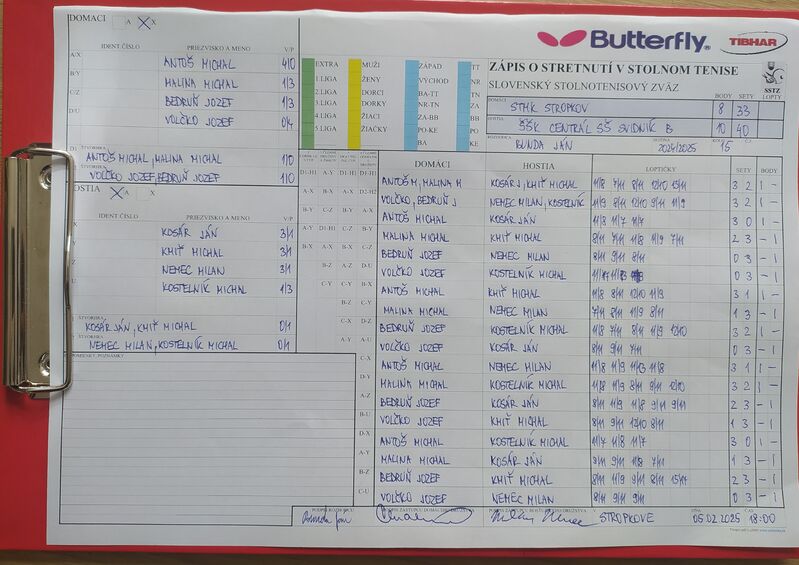 DOMACI A X
Butterfly
TIBHAR
IDENT ČÍSLO PRIEZVISKO A MENO V/P
ANTOŠ MICHAL 4/0
MALINA MICHAL 1/3
BEDRUŇ JOZEF 1/3
VOLČKO JOZEF 0/4
ŠTVORHRA
ANTOŠ MICHAL, MALINA MICHAL 1/0
VOLČKO JOZEF, BEDRUŇ JOZEF 1/0
OSTIA A X
IDENT ČÍSLO PRIEZVISKO A MENO V/P
KOSÁR JÁN 3/1
KMIŤ MICHAL 3/1
NEMEC MILAN 3/1
KOSTELNÍK MICHAL 1/3
ŠTVORHRA
KOSÁR JÁN, KMIŤ MICHAL 0/1
NEMEC MILAN, KOSTELNÍK MICHAL 0/1
EXTRA MUŽI ZÁPAD TT
1.LIGA ŽENY VÝCHOD NR
2.LIGA DORCI BA-TT TN
3.LIGA DORKY NR-TN ZA
4.LIGA ŽIACI ZA-BB BB
5.LIGA ŽIAČKY PO-KE PO
BA KE
ZÁPIS O STRETNUTÍ V STOLNOM TENISE
SLOVENSKÝ STOLNOTENISOVÝ ZVÄZ
SSTZ
BODY SETY LOPTY
STMK STROPKOV 8 33
ŠŠK CENTRÁL SŠ SVIDNÍK B 10 40
BUNDA JÁN 2024/2025 15
DOMÁCI HOSTIA LOPTIČKY SETY BODY
ANTOŠ M, MALINA M KOSÁR J, KMIŤ MICHAL 11/8 7/11 8/11 12/10 13/11 3 2 1 -
VOLČKO, BEDRUŇ J NEMEC MILAN, KOSTELNÍK 11/9 8/11 12/10 9/11 11/9 3 2 1 -
ANTOŠ MICHAL KOSÁR JÁN 11/8 11/7 11/7 3 0 1 -
MALINA MICHAL KMIŤ MICHAL 8/11 7/11 11/8 11/9 7/11 2 3 - 1
BEDRUŇ JOZEF NEMEC MILAN 8/11 9/11 8/11 0 3 - 1
VOLČKO JOZEF KOSTELNÍK MICHAL 0 3 - 1
ANTOŠ MICHAL KMIŤ MICHAL 11/8 8/11 12/10 11/9 3 1 1 -
MALINA MICHAL NEMEC MILAN 7/11 8/11 11/9 8/11 1 3 - 1
BEDRUŇ JOZEF KOSTELNÍK MICHAL 11/8 7/11 8/11 11/9 12/10 3 2 1 -
VOLČKO JOZEF KOSÁR JÁN 8/11 9/11 7/11 0 3 - 1
ANTOŠ MICHAL NEMEC MILAN 11/8 9/11 11/3 11/8 3 1 1 -
MALINA MICHAL KOSTELNÍK MICHAL 11/8 11/9 8/11 9/11 12/10 3 2 1 -
BEDRUŇ JOZEF KOSÁR JÁN 8/11 11/9 11/8 9/11 9/11 2 3 - 1
VOLČKO JOZEF KMIŤ MICHAL 8/11 9/11 12/10 8/11 1 3 - 1
ANTOŠ MICHAL KOSTELNÍK MICHAL 11/7 11/8 11/7 3 0 1 -
MALINA MICHAL KOSÁR JÁN 9/11 9/11 11/8 7/11 1 3 - 1
BEDRUŇ JOZEF KMIŤ MICHAL 8/11 11/9 9/11 2 3 - 1
VOLČKO JOZEF NEMEC MILAN 8/11 9/11 9/11 0 3 - 1
STROPKOVE 05.02.2025 18:00